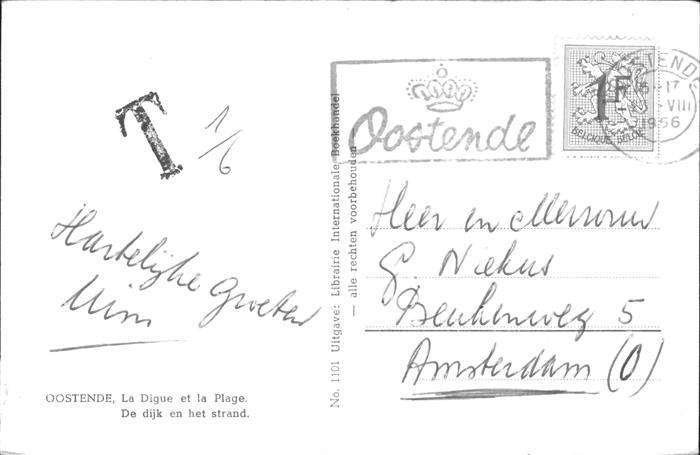 T 1/6
Hartelijke groeten
Wim
OOSTENDE, La Digue et la Plage.
De dijk en het strand.
No. 1101 Uitgave: Librairie Internationale Boekhandel
— alle rechten voorbehouden —
Oostende
1F
BELGIQUE-BELGIE
16-17
VIII
1956
Heer en Mevrouw
G. Niekus
Beukenweg 5
Amsterdam (O)